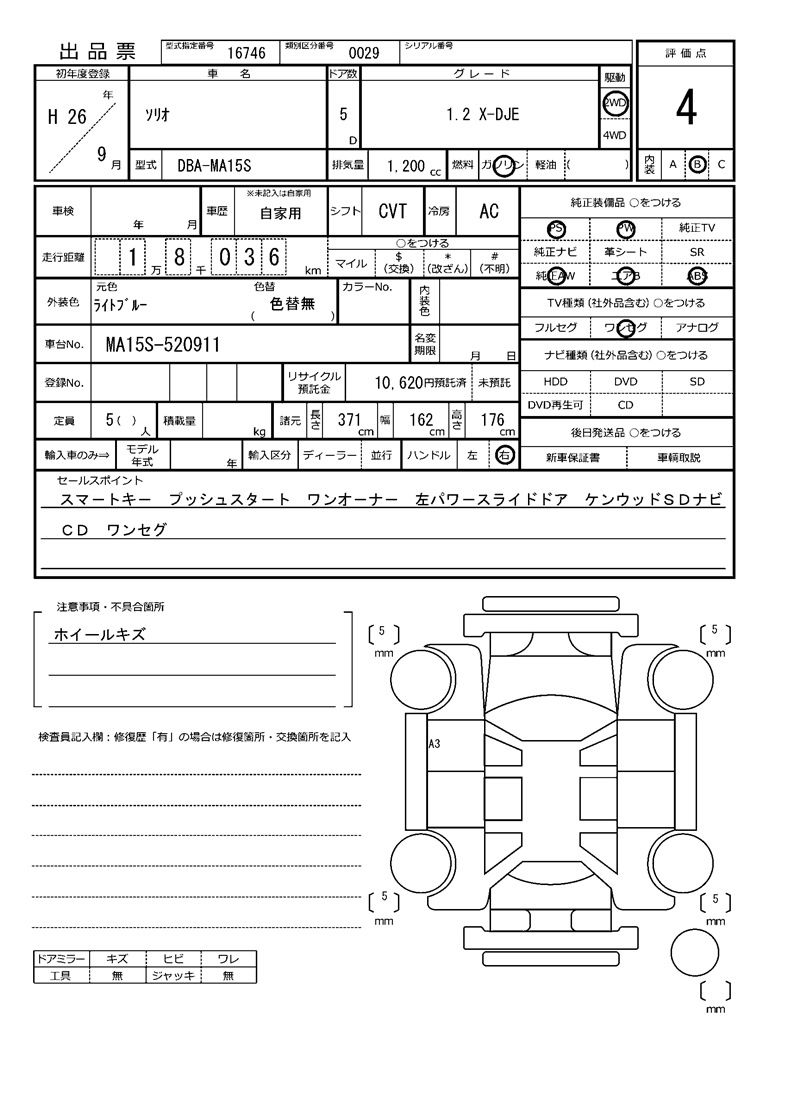 出品票 型式指定番号 16746 類別区分番号 0029 シリアル番号
評価点
初年度登録 車名 ドア数 グレード 駆動
H 26 年 9 月 ソリオ 5 D 1.2 X-DJE 2WD 4WD
4
型式 DBA-MA15S 排気量 1,200 cc 燃料 ガソリン 軽油 ( )
内装 A B C
車検 年 月 車歴 ※未記入は自家用 自家用 シフト CVT 冷房 AC
走行距離 1 万 8 千 0 3 6 km
○をつける
マイル $ (交換) * (改ざん) # (不明)
外装色 元色 ライトブルー 色替 ( 色替無 ) カラーNo. 内装色
車台No. MA15S-520911 名変期限 月 日
登録No. リサイクル預託金 10,620円預託済 未預託
定員 5 ( ) 人 積載量 kg 諸元 長さ 371 cm 幅 162 cm 高さ 176 cm
輸入車のみ⇒ モデル年式 年 輸入区分 ディーラー 並行 ハンドル 左 右
純正装備品 ○をつける
PS PW 純正TV
純正ナビ 革シート SR
純正AW エアB ABS
TV種類 (社外品含む) ○をつける
フルセグ ワンセグ アナログ
ナビ種類 (社外品含む) ○をつける
HDD DVD SD
DVD再生可 CD
後日発送品 ○をつける
新車保証書 車輌取説
セールスポイント
スマートキー プッシュスタート ワンオーナー 左パワースライドドア ケンウッドSDナビ
CD ワンセグ
注意事項・不具合箇所
ホイールキズ
検査員記入欄：修復歴「有」の場合は修復箇所・交換箇所を記入
ドアミラー キズ ヒビ ワレ
工具 無 ジャッキ 無
5 mm
5 mm
A3
5 mm
5 mm
mm